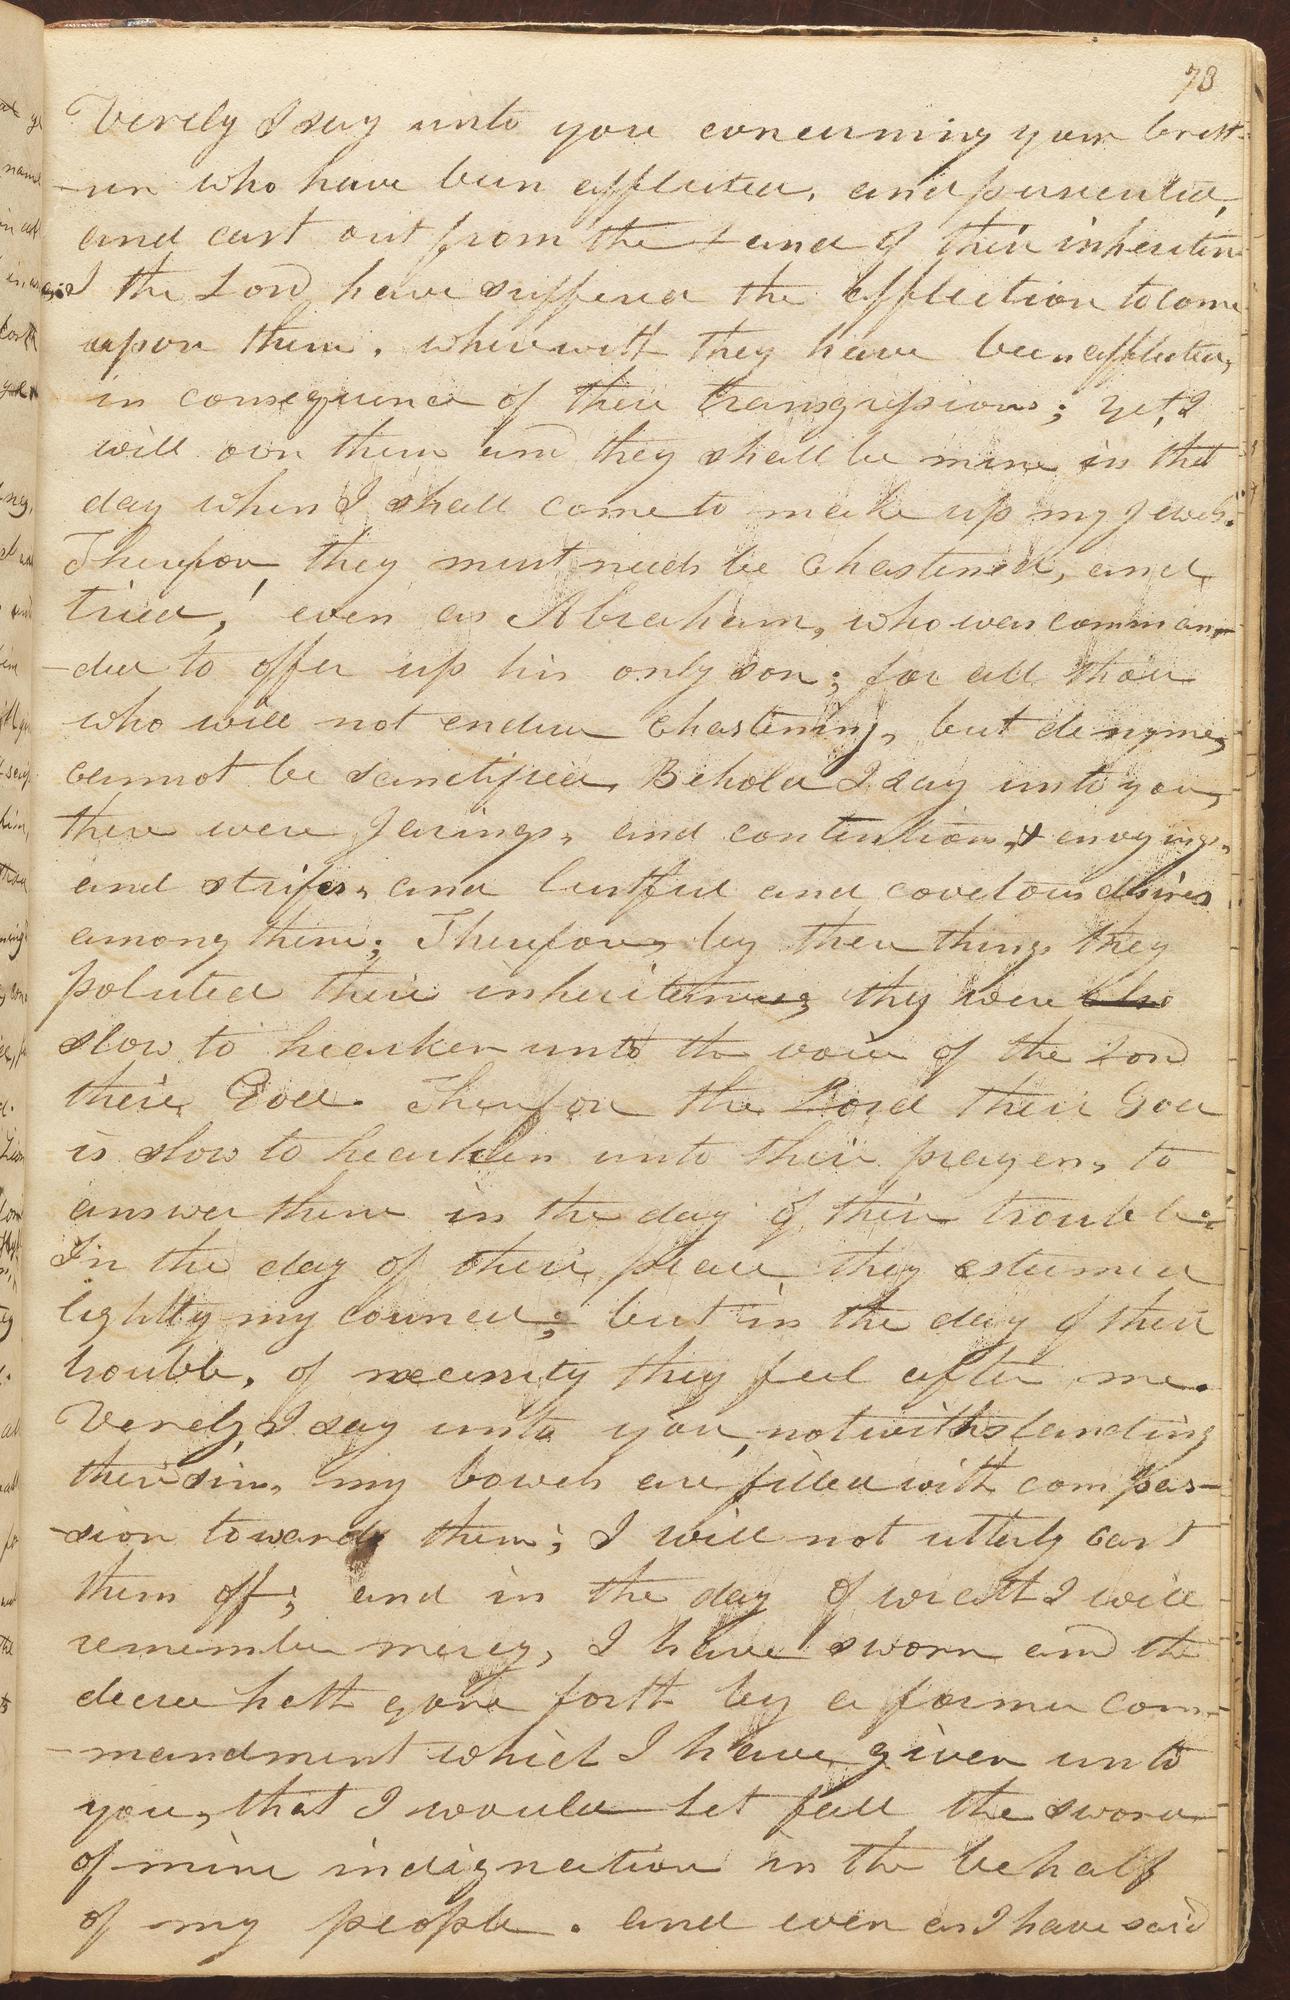 73
Verely I say unto you concerning your breth-
-ren who have been afflicted, and persecuted,
and cast out from the Land of their inheriten
I the Lord have suffered the affliction to come
upon them, wherewith they have been afflicted,
in consequence of their transgressions; yet, I
will own them and they shall be mine in that
day when I shall come to make up my Jewels.
Therefore, they must needs be chastened, and
tried, even as Abraham, who was comman-
-ded to offer up his only son; for all those
who will not endure chastening, but deny me,
cannot be sanctified, Behold I say unto you,
there were Jarings, and contentions, & envyings,
and strifes, and lustful and covetous desires
among them; Therefore, by these things they
poluted their inheritences, they were
slow to hearken unto the voice of the Lord
their God. Therefore the Lord their God
is slow to hearken unto their prayers, to
answer them in the day of their trouble:
In the day of their peace they esteemed
lightly my councel; but in the day of their
trouble, of necessity they feel after me.
Verely, I say unto you, notwithstanding
their sins, my bowels are filled with compas-
-sion towards them; I will not utterly cast
them off; and in the day of wrath I will
remember mercy, I have sworn and the
decree hath gone forth by a former com-
-mandment which I have given unto
you, that I would let fall the sword
of mine indignation in the behalf
of my people. and even as I have said